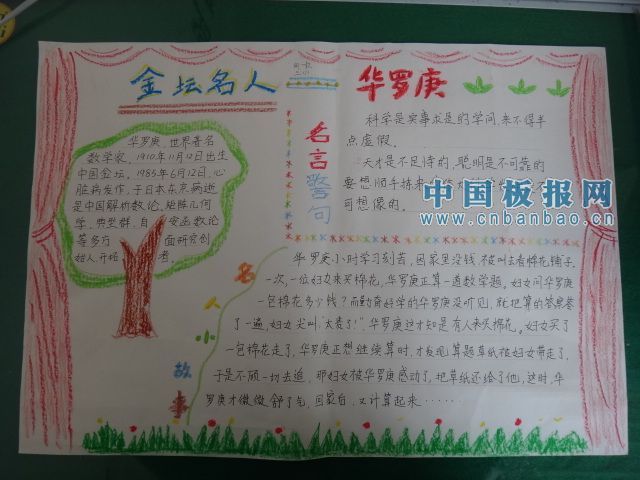 金坛名人
华罗庚
华罗庚，世界著名
数学家，1910年11月12日出生
中国金坛，1985年6月12日，心
脏病发作，于日本东京病逝
是中国解析数论，矩阵几何
学，典型群，自安函数论
等多方面研究创
始人开拓者
名言警句
科学是实事求是的学问，来不得半
点虚假。
天才是不足恃的，聪明是不可靠的
要想顺手拈来
可想像的。
中国板报网
www.cnbanbao.cn
名人小故事
华罗庚小时学习刻苦，因家里没钱，被叫去看棉花铺子。
一次，一位妇女来买棉花，华罗庚正算一道数学题，妇女问华罗庚
一包棉花多少钱？而勤奋好学的华罗庚没听见，就把算的答案答
了一遍，妇女尖叫“太贵了！”，华罗庚这才知是有人来买棉花。妇女买了
一包棉花走了，华罗庚正想继续算时，才发现算题草纸被妇女带走了，
于是不顾一切去追，那妇女被华罗庚感动了，把草纸还给了他，这时，华
罗庚才微微舒了气，回家后，又计算起来……